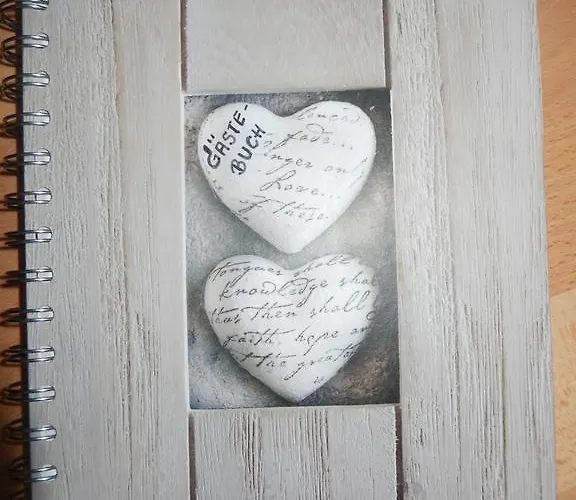 GÄSTE-
BUCH
fade...
Love...
of these
Tongues shall
knowledge shal
then shall
faith, hope an
the greatest